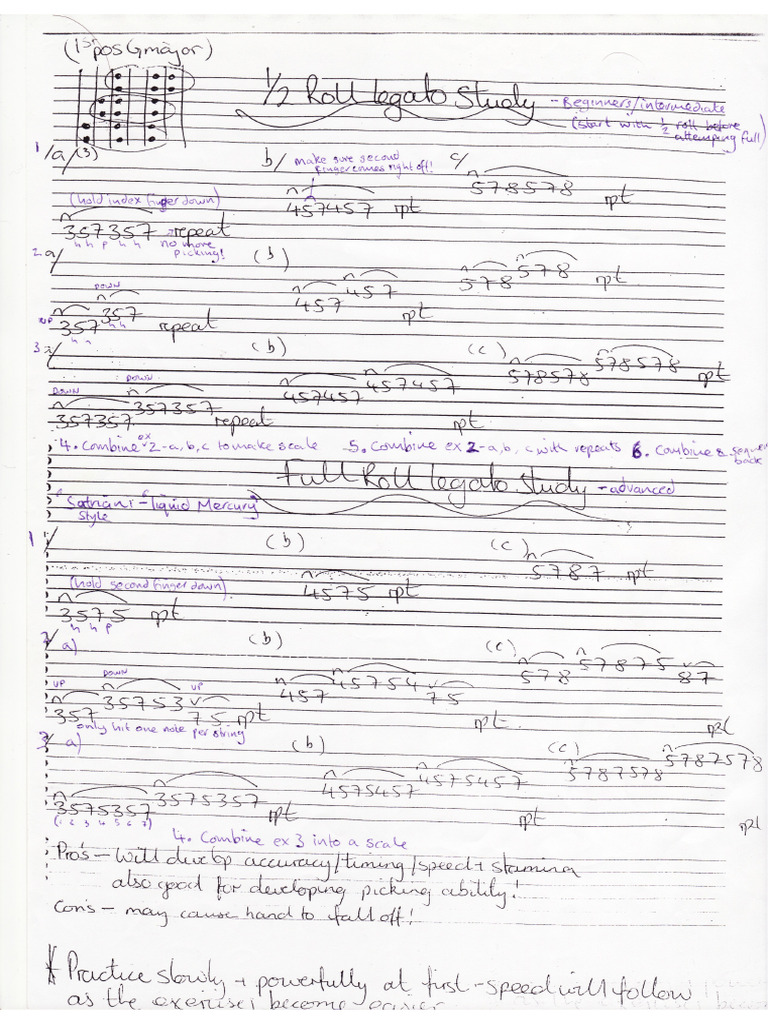 (1st pos G major)
1/2 Roll legato Study - Beginners/intermediate
(Start with 1/2 roll before attempting full)
1/a/(3) b/ make sure second finger comes right off! c/
578578 rpt
(hold index finger down) 457457 rpt
357357 repeat
h h p h h no more picking!
2a/ (b)
578 578 rpt
DOWN 457 457 rpt
UP 357 357 repeat
h h h h
3 (b) (c)
578578 578578 rpt
DOWN 457457 457457 rpt
DOWN 357357 357357 repeat
4. Combine ex 2-a, b, c to make scale 5. Combine ex 2-a, b, c with repeats 6. Combine & back
Full Roll legato Study - advanced
"Satriani - liquid Mercury" style
1/ (b) (c)
5787 rpt
(hold second finger down) 4575 rpt
3575 rpt
h h p
2/ a) (b) (c)
578 57875 87
DOWN 457 45754 75
UP 357 35753 UP 75 rpt rpt rpt
only hit one note per string
3/ a) (b) (c)
5787578 5787578
4575457 4575457
3575357 3575357 rpt rpt rpt
(1 2 3 4 5 6 7)
4. Combine ex 3 into a scale
Pro's - Will develop accuracy/timing/speed + stamina
also good for developing picking ability!
Con's - may cause hand to fall off!
* Practice slowly + powerfully at first - speed will follow
as the exercises become easier